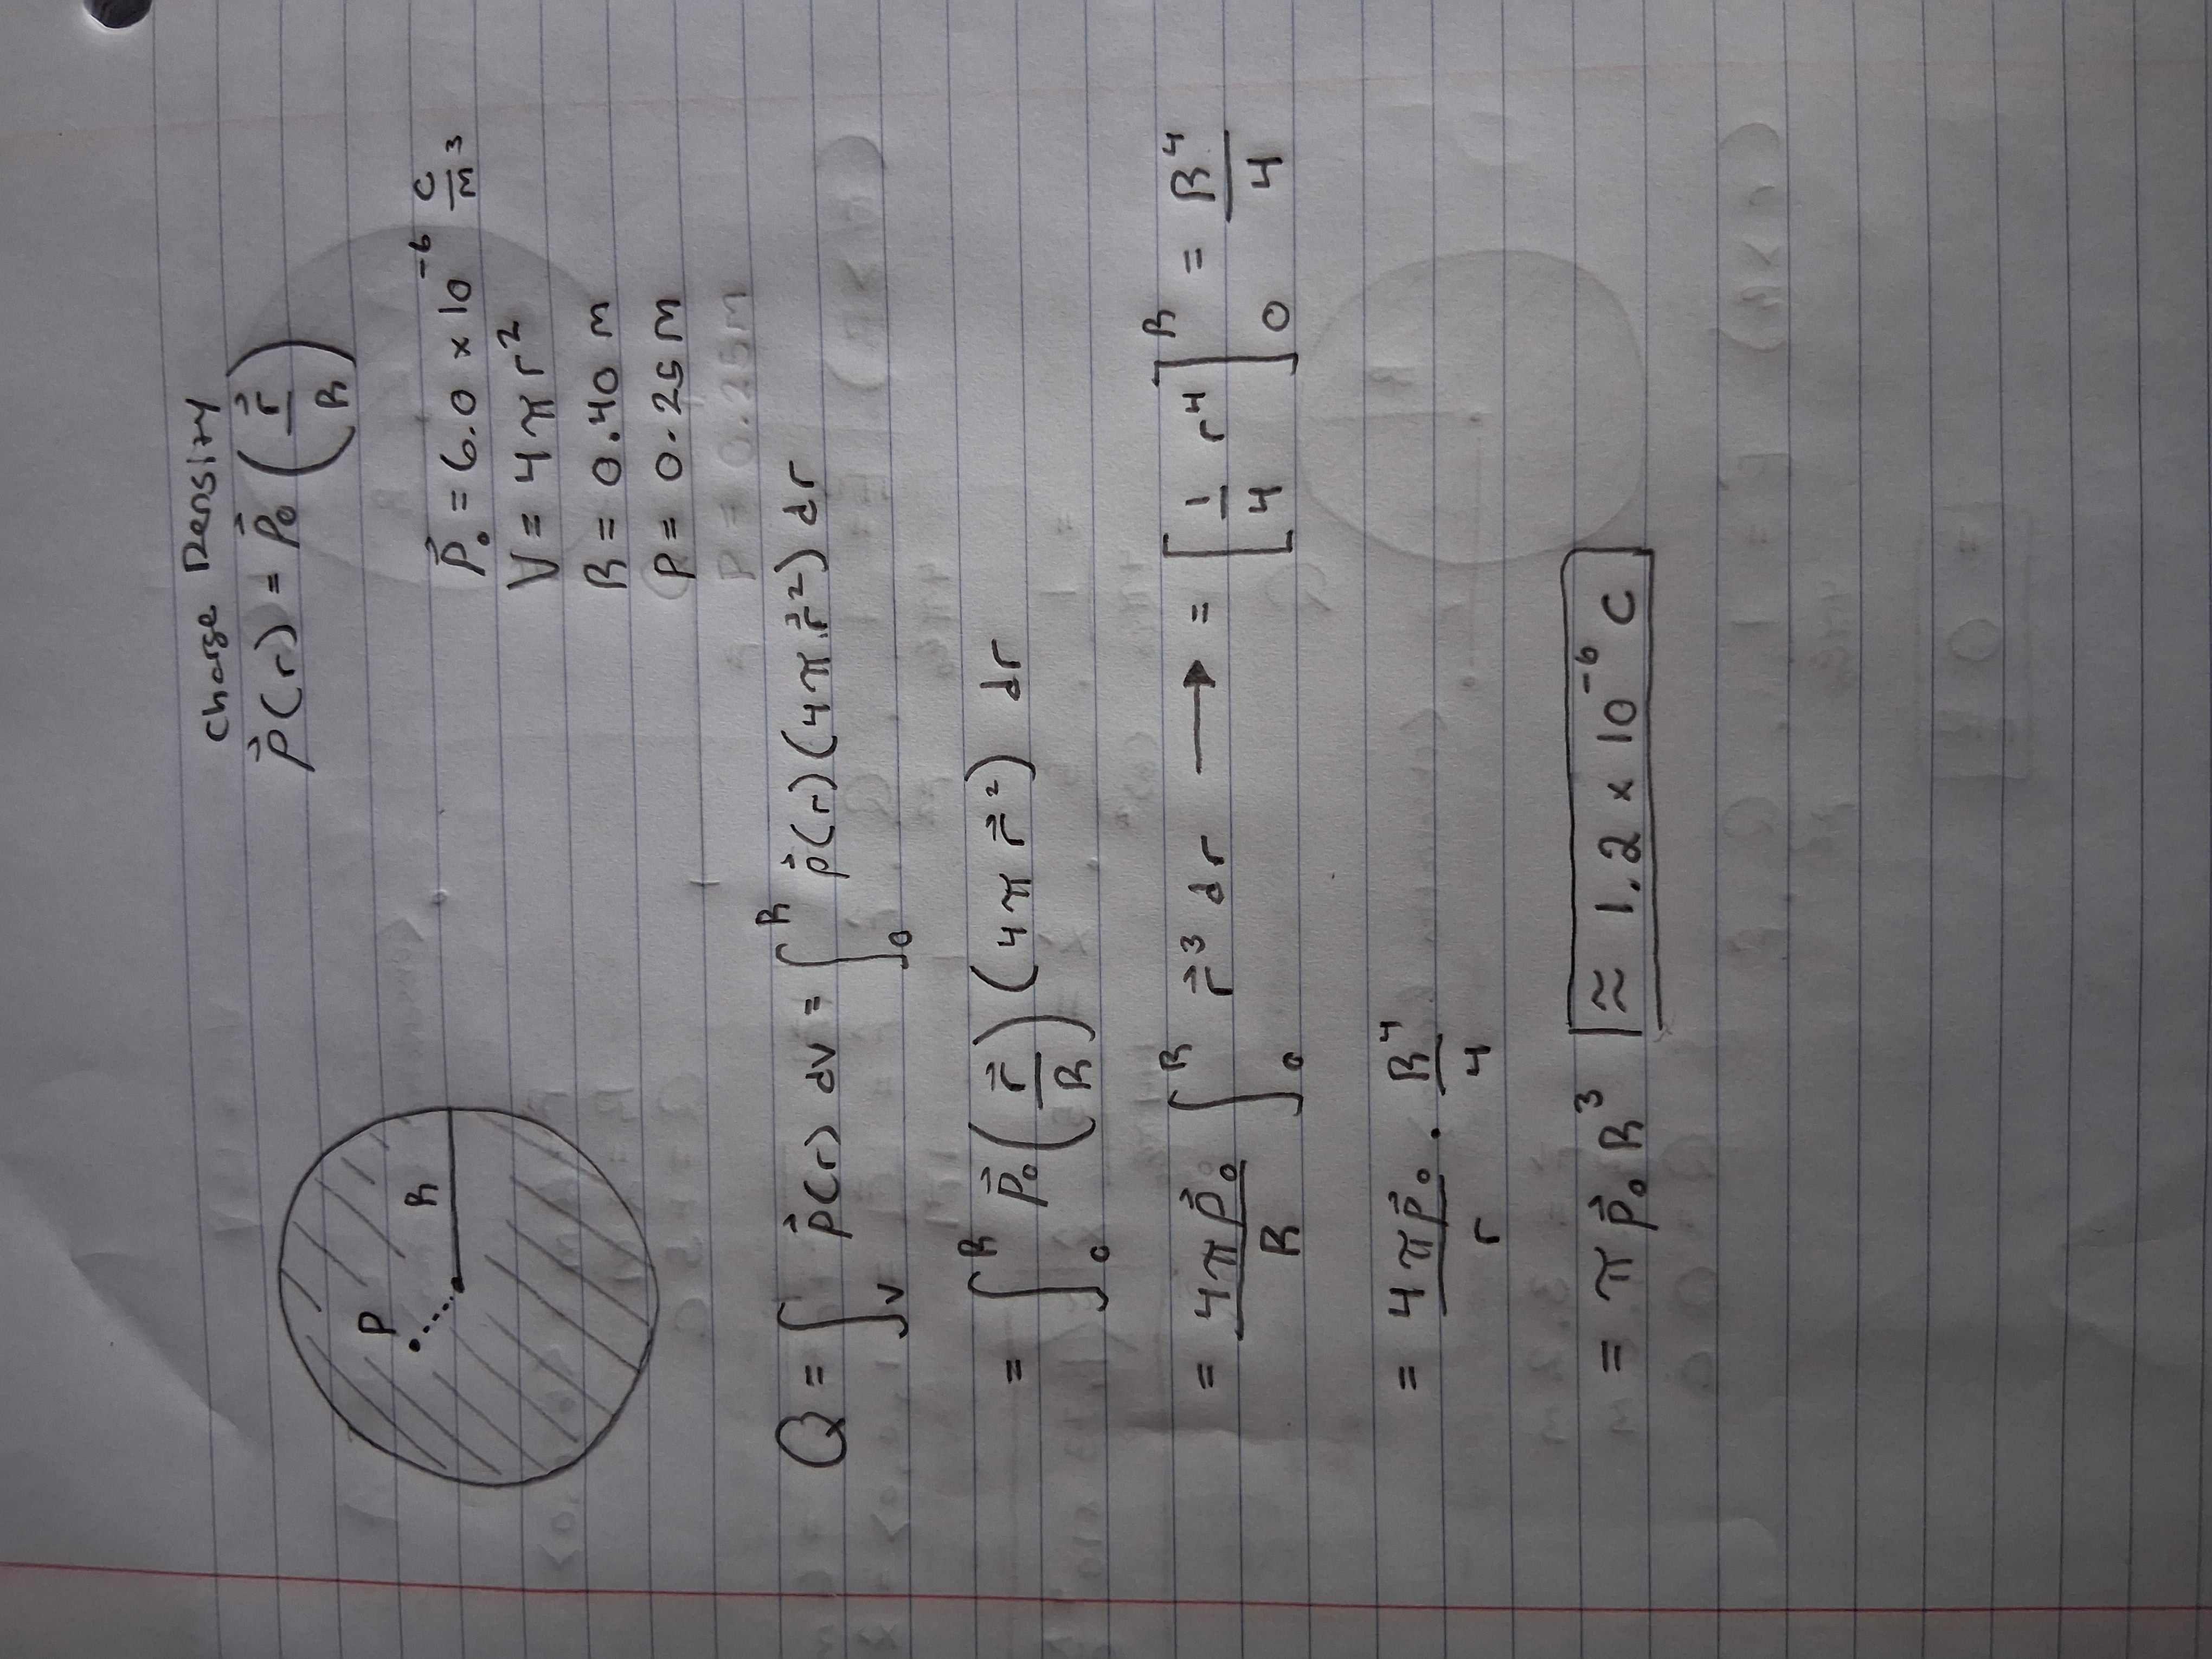 Charge Density
P⃗(r) = P⃗₀ (r⃗/R)
P⃗₀ = 6.0 x 10⁻⁶ C/m³
V = 4πr²
R = 0.40 m
P = 0.25 m
P
R
Q = ∫ᵥ P⃗(r) dv = ∫₀ᴿ P⃗(r)(4πr⃗²)dr
= ∫₀ᴿ P⃗₀ (r⃗/R) (4πr⃗²) dr
= 4πP⃗₀/R ∫₀ᴿ r⃗³ dr → = [1/4 r⁴]₀ᴿ = R⁴/4
= 4πP⃗₀/r · R⁴/4
= πP⃗₀R³ ≈ 1.2 x 10⁻⁶ C